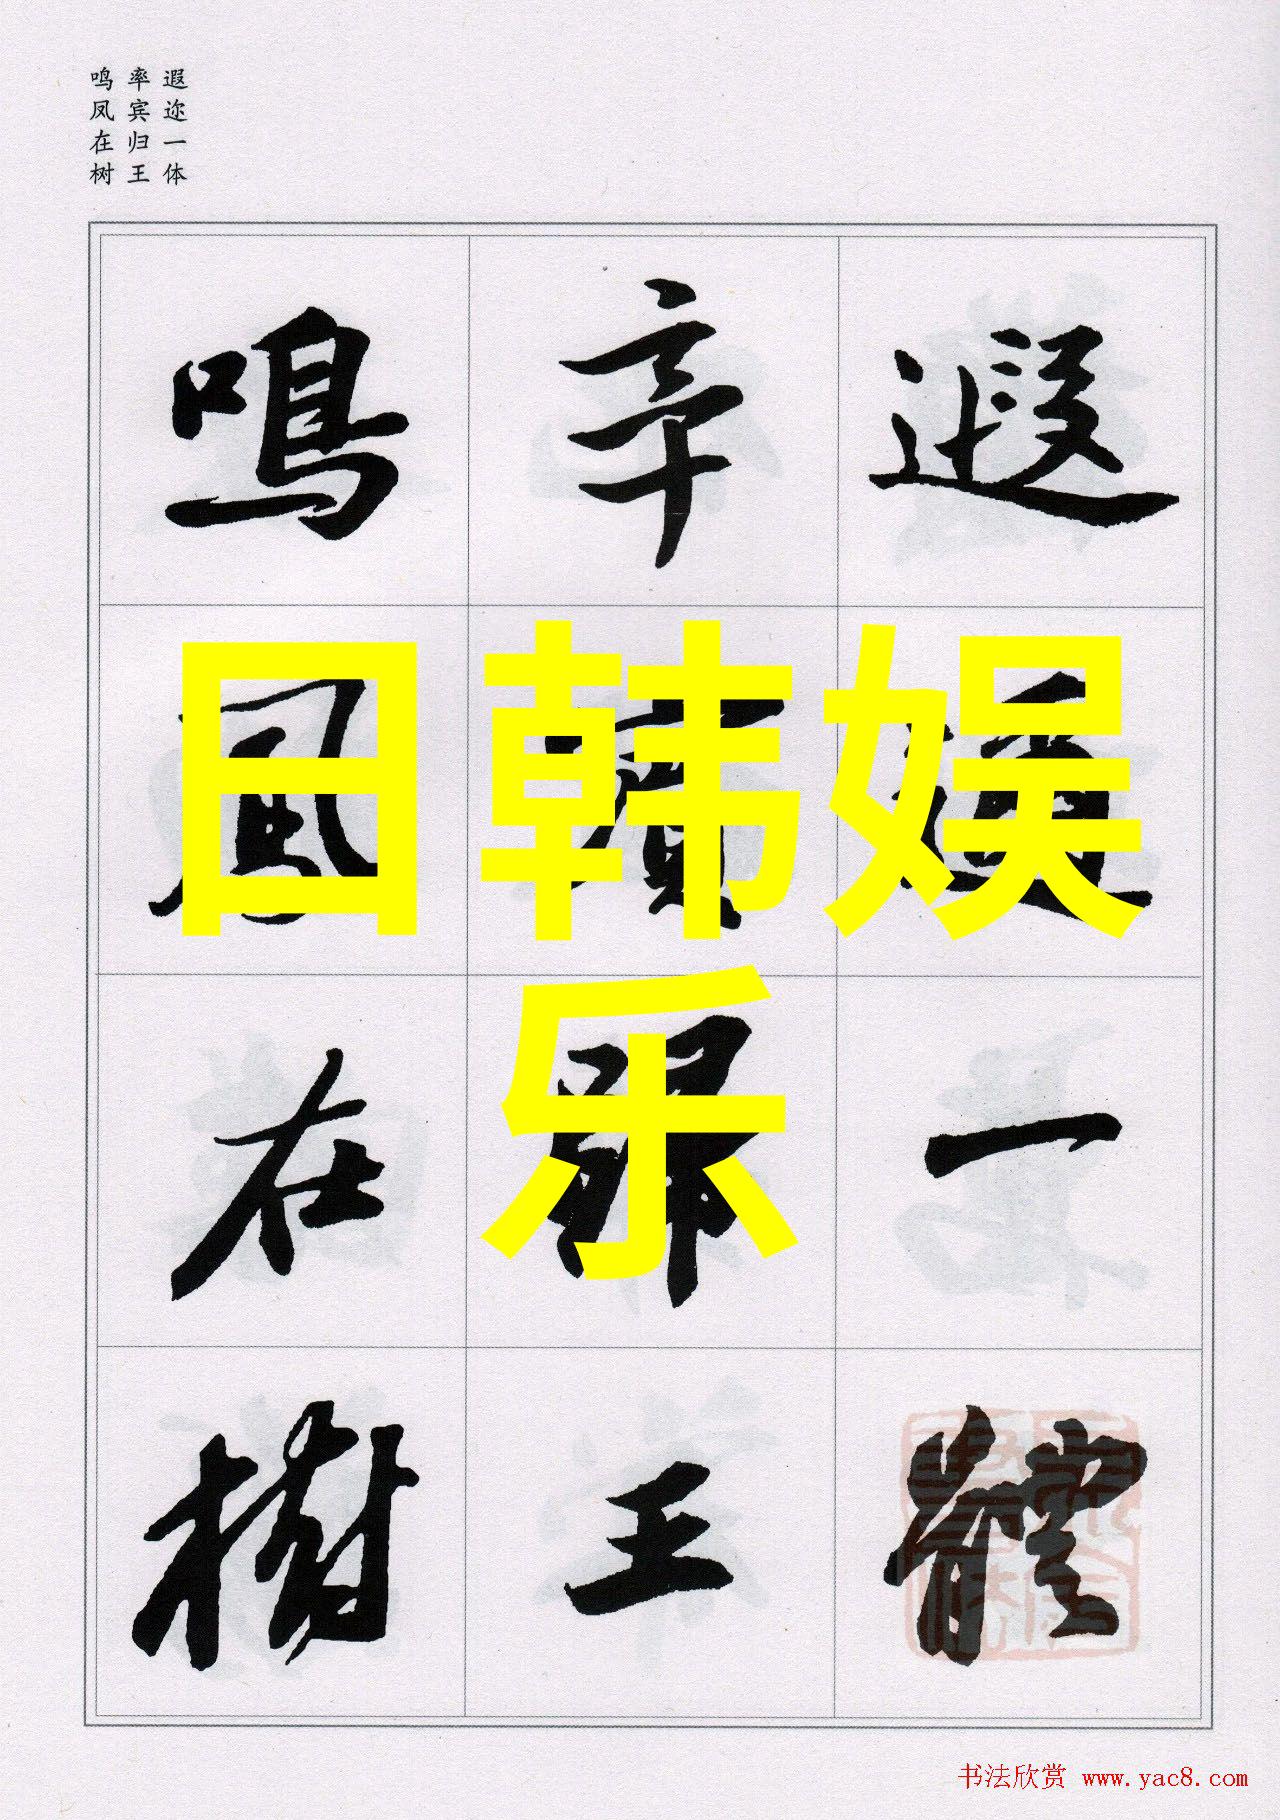 遐迩一体
率宾归王
鸣凤在树
遐邇一體
率賓歸王
鳴鳳在樹
日韩娱
乐
书法欣赏 www.yac8.com